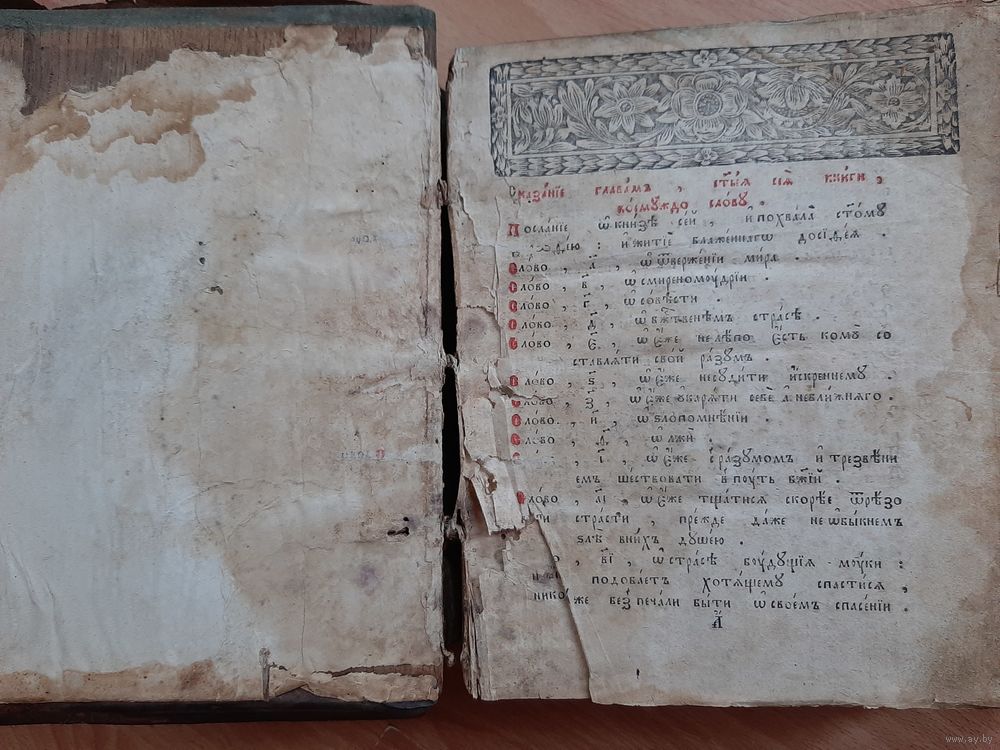 Сказа́нїе глава́мъ , ст҃ы́ѧ сеѧ̀ кни́ги ,
коему́ждо сло́ву .
Посла́нїе ѡ҆ кни́зѣ се́й , и҆ похвала̀ ст҃о́му
и҆ житїѐ блаже́ннагѡ досїѳе́ѧ .
Сло́во , а҃ , ѡ҆ ѿверже́нїи мі́ра .
Сло́во , в҃ , ѡ҆ смиреномѹ́дрїи .
Сло́во , г҃ , ѡ҆ со́вѣсти .
Сло́во , д҃ , ѡ҆ бж҃е́ственѣмъ стра́сѣ .
Сло́во , є҃ , ѡ҆ е҆́же не лѣ́по е҆́сть комꙋ̀ со
ставлѧ́ти сво́й ра́зум .
Сло́во , ѕ҃ , ѡ҆ е҆́же несуди́ти и҆́скреннему .
Сло́во , з҃ , ѡ҆ е҆́же укарѧ́ти себѐ а҆ небли́жнѧго .
Сло́во , и҃ , ѡ҆ ѕлопомнѣ́нїи .
Сло́во , ѳ҃ , ѡ҆ лжѝ .
і҃ , ѡ҆ е҆́же с ра́зумомъ и҆ трезве́ни
емъ ше́ствовати в пѹ́ть бж҃їй .
Сло́во , а҃і , ѡ҆ е҆́же тща́тисѧ скорѣ́е ѿрѣ́зо
ти стра́сти , пре́жде да́же не ѡ҆бы́кнемъ
ѕлѣ̀ вни́хъ душе́ю .
в҃і , ѡ҆ стра́сѣ бѹ́дущїѧ мѹ́ки :
подоба́етъ хотѧ́щему спасти́сѧ ,
нико́же без̾ печа́ли бы́ти ѡ҆ свое́мъ спасе́нїи .
а҃
www.ay.by